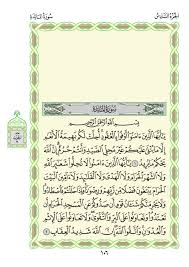 الجزء السادس سورة المائدة
سورة المائدة
بِسْمِ اللَّهِ الرَّحْمَٰنِ الرَّحِيمِ
يَٰٓأَيُّهَا الَّذِينَ ءَامَنُوٓا أَوْفُوا بِالْعُقُودِ أُحِلَّتْ لَكُم بَهِيمَةُ الْأَنْعَٰمِ
إِلَّا مَا يُتْلَىٰ عَلَيْكُمْ غَيْرَ مُحِلِّي الصَّيْدِ وَأَنتُمْ حُرُمٌ إِنَّ اللَّهَ
يَحْكُمُ مَا يُرِيدُ ١ يَٰٓأَيُّهَا الَّذِينَ ءَامَنُوا لَا تُحِلُّوا شَعَٰٓئِرَ اللَّهِ
وَلَا الشَّهْرَ الْحَرَامَ وَلَا الْهَدْيَ وَلَا الْقَلَٰٓئِدَ وَلَآ ءَآمِّينَ الْبَيْتَ
الْحَرَامَ يَبْتَغُونَ فَضْلًا مِّن رَّبِّهِمْ وَرِضْوَٰنًا وَإِذَا حَلَلْتُمْ فَاصْطَادُوا
وَلَا يَجْرِمَنَّكُمْ شَنَـَٔانُ قَوْمٍ أَن صَدُّوكُمْ عَنِ الْمَسْجِدِ الْحَرَامِ
أَن تَعْتَدُوا وَتَعَاوَنُوا عَلَى الْبِرِّ وَالتَّقْوَىٰ وَلَا تَعَاوَنُوا عَلَى الْإِثْمِ
وَالْعُدْوَٰنِ وَاتَّقُوا اللَّهَ إِنَّ اللَّهَ شَدِيدُ الْعِقَابِ ٢
١٠٦